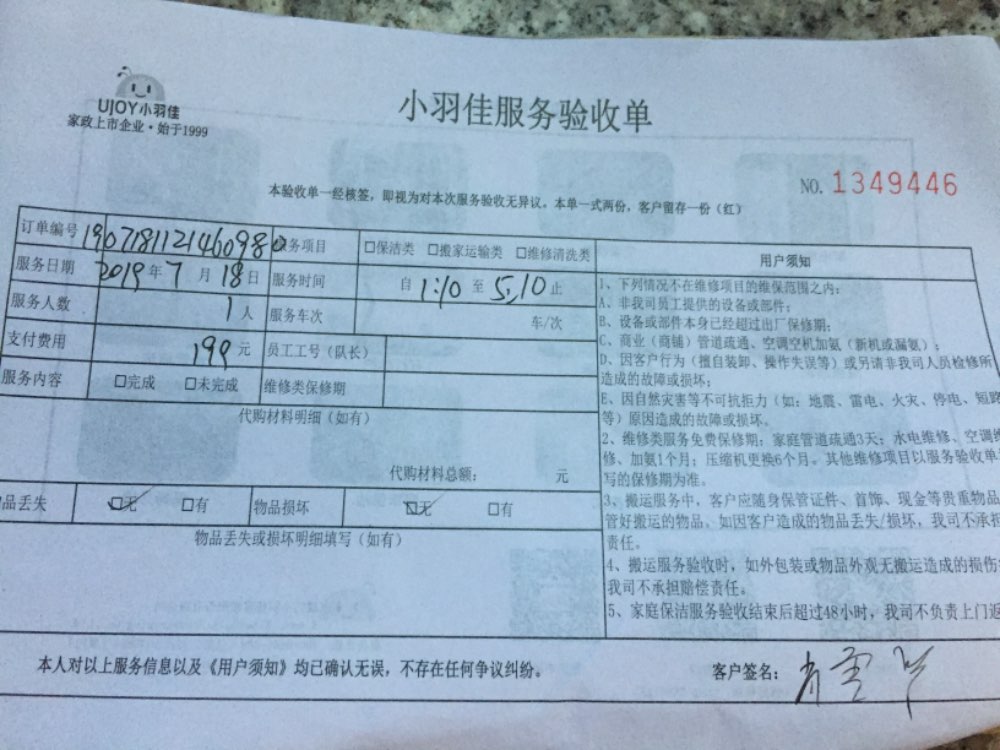 UJOY小羽佳
家政上市企业·始于1999
小羽佳服务验收单
NO. 1349446
本验收单一经核签，即视为对本次服务验收无异议。本单一式两份，客户留存一份（红）
订单编号 190718112146098 服务项目 □保洁类 □搬家运输类 □维修清洗类
服务日期 2019年7月18日 服务时间 自 1:10 至 5:10 止
服务人数 1人 服务车次 车/次
支付费用 199元 员工工号（队长）
服务内容 □完成 □未完成 维修类保修期
代购材料明细（如有）
代购材料总额： 元
品丢失 ☑无 □有 物品损坏 ☑无 □有
物品丢失或损坏明细填写（如有）
用户须知
1、下列情况不在维修项目的维保范围之内：
A、非我司员工提供的设备或部件；
B、设备或部件本身已经超过出厂保修期；
C、商业（商铺）管道疏通、空调空机加氨（新机或漏氨）；
D、因客户行为（擅自装卸、操作失误等）或另请非我司人员检修所
造成的故障或损坏；
E、因自然灾害等不可抗拒力（如：地震、雷电、火灾、停电、短路
等）原因造成的故障或损坏。
2、维修类服务免费保修期：家庭管道疏通3天；水电维修、空调维
修、加氨1个月；压缩机更换6个月。其他维修项目以服务验收单
写的保修期为准。
3、搬运服务中，客户应随身保管证件、首饰、现金等贵重物品
管好搬运的物品，如因客户造成的物品丢失/损坏，我司不承担
责任。
4、搬运服务验收时，如外包装或物品外观无搬运造成的损伤
我司不承担赔偿责任。
5、家庭保洁服务验收结束后超过48小时，我司不负责上门返
本人对以上服务信息以及《用户须知》均已确认无误，不存在任何争议纠纷。
客户签名：